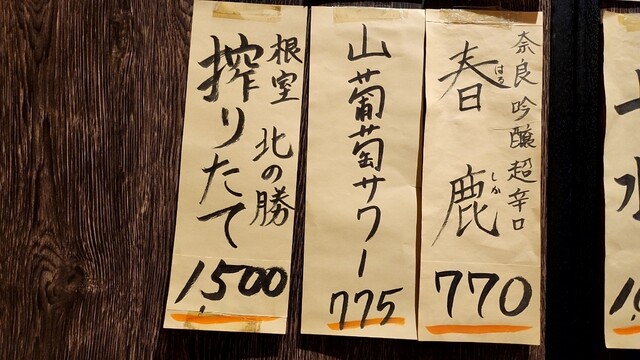 奈良 吟醸 超辛口
春鹿
はる
しか
770
山葡萄サワー
775
根室 北の勝
搾りたて
1,500